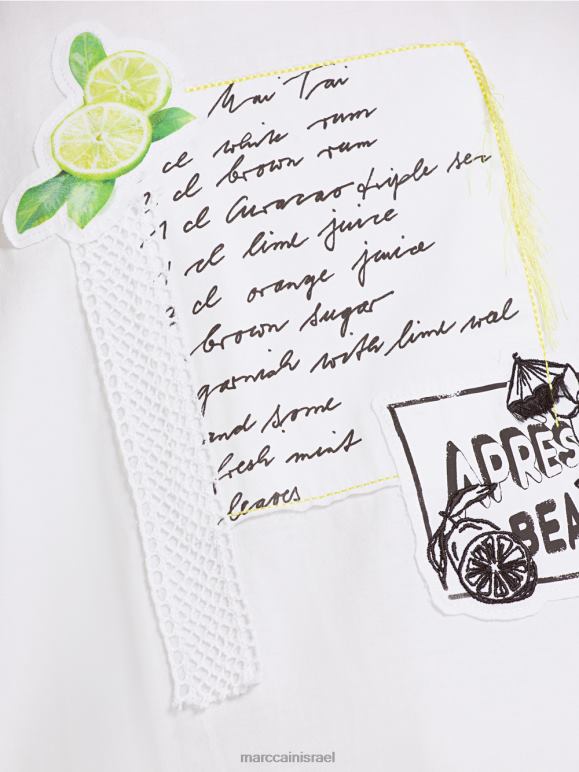 Mai Tai
cl white rum
cl brown rum
1 cl Curacao triple sec
cl lime juice
cl orange juice
brown sugar
garnish with lime
and some
fresh mint
leaves
APRES
BEA
marccainisrael